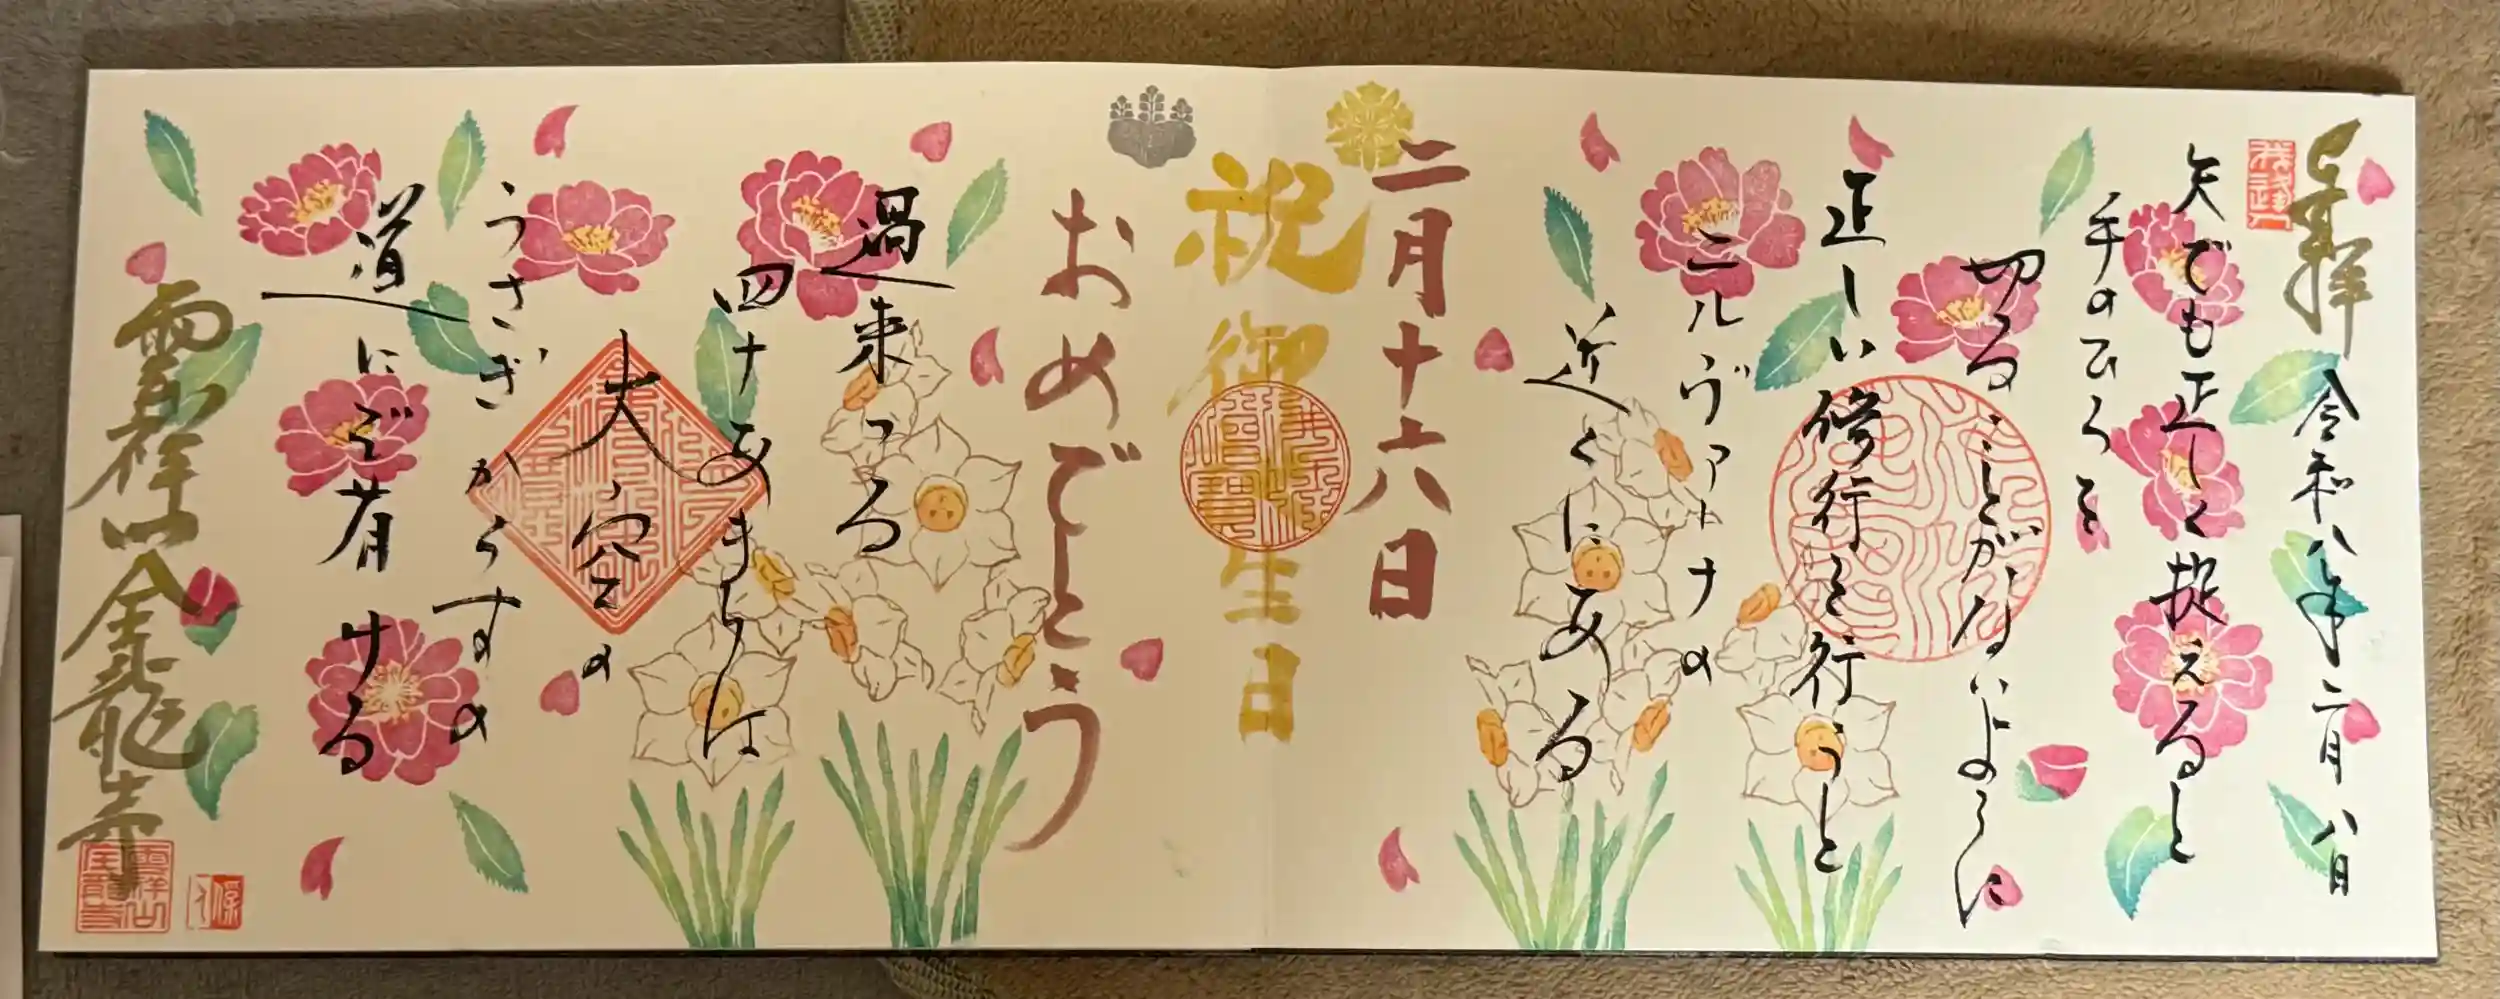 奉拝
我逢人
令和八年二月八日
矢でも正しく捉えると
手のひらを
切ることがないように
正しい修行を行うと
ニルヴァーナの
近くにある
二月十六日
祝御誕生日
おめでとう
過来つる
四十あまりは
大空の
うさぎからすの
道にぞ有ける
雲祥山金龍寺
雲祥山
金龍寺